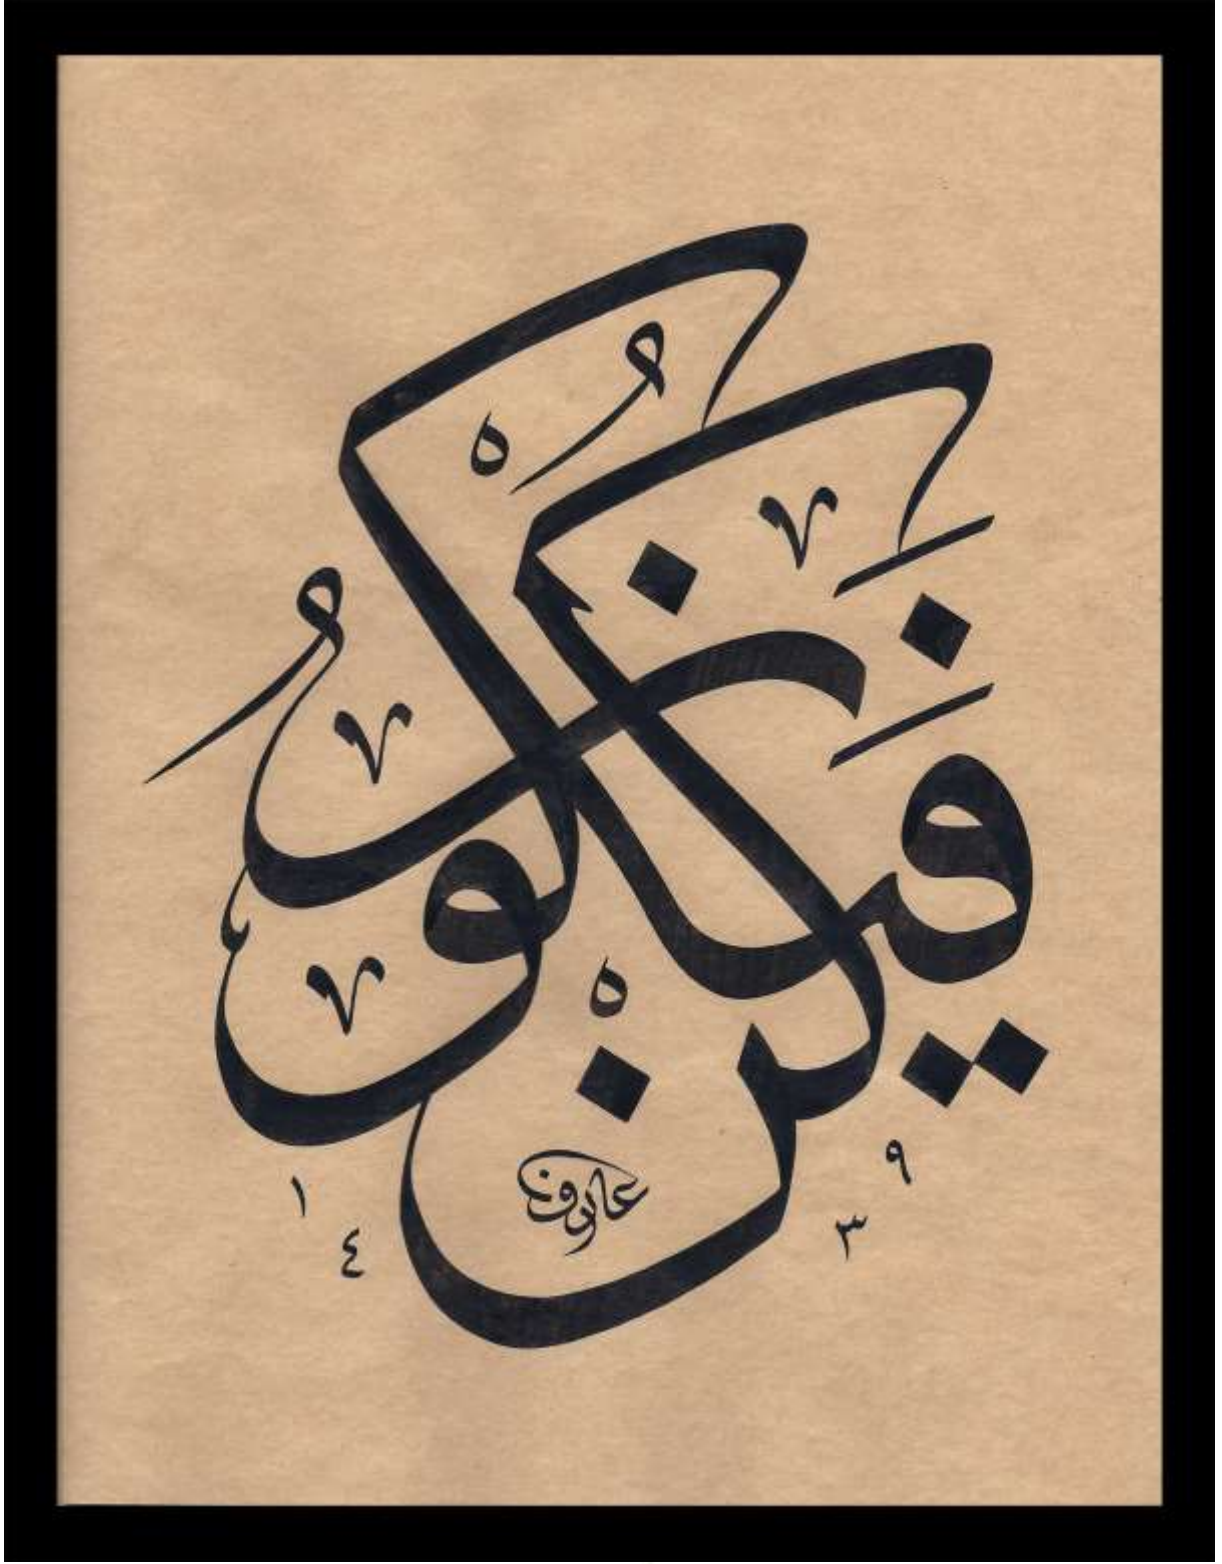 كُنْ فَيَكُونُ
عارف
١٤٣٩